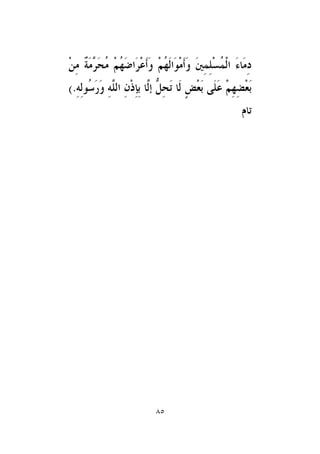 دِمَاءَ الْمُسْلِمِينَ وَأَمْوَالَهُمْ وَأَعْرَاضَهُمْ مُحَرَّمَةٌ مِنْ
بَعْضِهِمْ عَلَى بَعْضٍ لَا تَحِلُّ إلَّا بِإِذْنِ اللَّهِ وَرَسُولِهِ.)
تام
٨٥